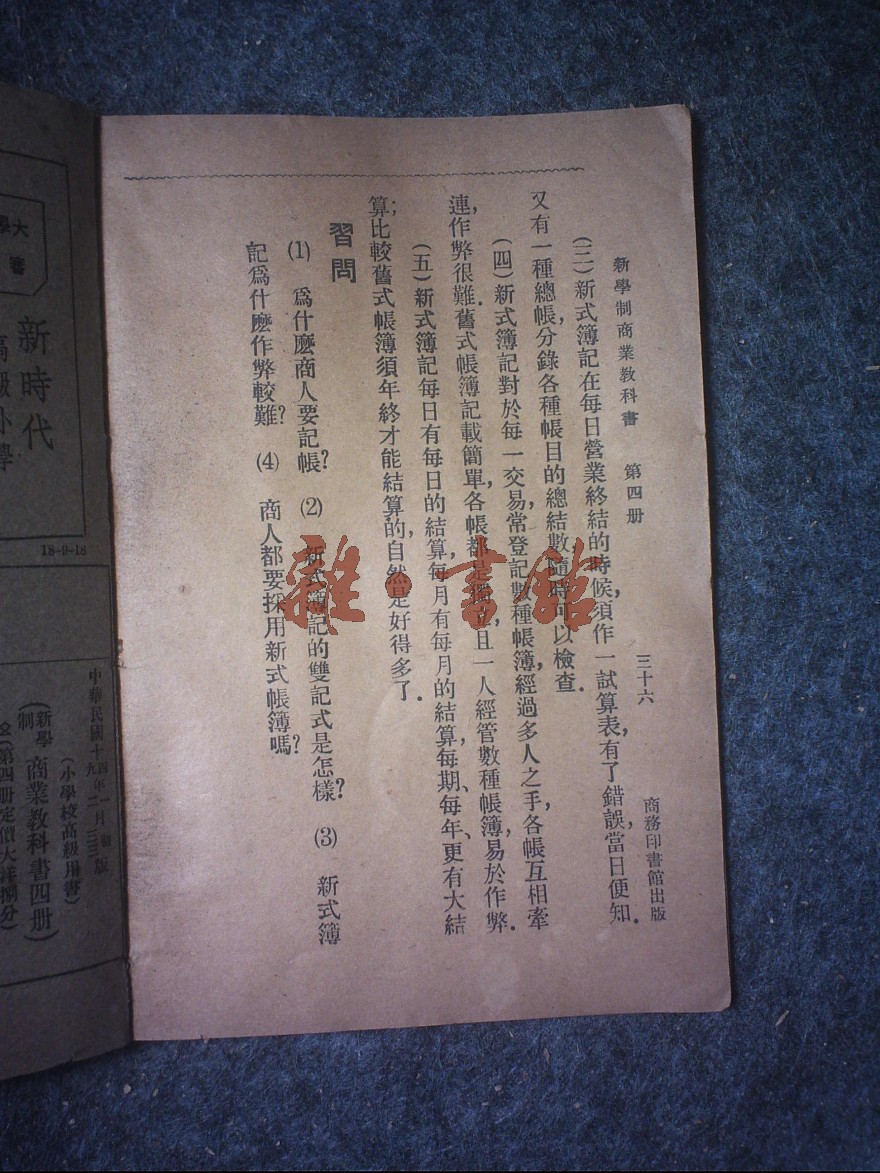 新學制商業教科書　第四册　三十六　商務印書館出版
(三)新式簿記在每日營業終結的時候,須作一試算表,有了錯誤,當日便知.
又有一種總帳,分錄各種帳目的總結數,隨時可以檢查.
(四)新式簿記對於每一交易,常登記數種帳簿,經過多人之手,各帳互相牽
連,作弊很難.舊式帳簿記載簡單,各帳都是獨立,且一人經管數種帳簿,易於作弊.
(五)新式簿記每日有每日的結算,每月有每月的結算,每期、每年、更有大結
算;比較舊式帳簿須年終才能結算的,自然是好得多了.
習問
(1)　爲什麽商人要記帳?　(2)　新式簿記的雙記式是怎樣?　(3)　新式簿
記爲什麽作弊較難?　(4)　商人都要採用新式帳簿嗎?
雜·書館
大學
書
新時代
高級小學
18-9-18
中華民國十四年一月初版
十九年二月
(小學校高級用書)
(新學制商業教科書四册)
(第四册定價大洋捌分)